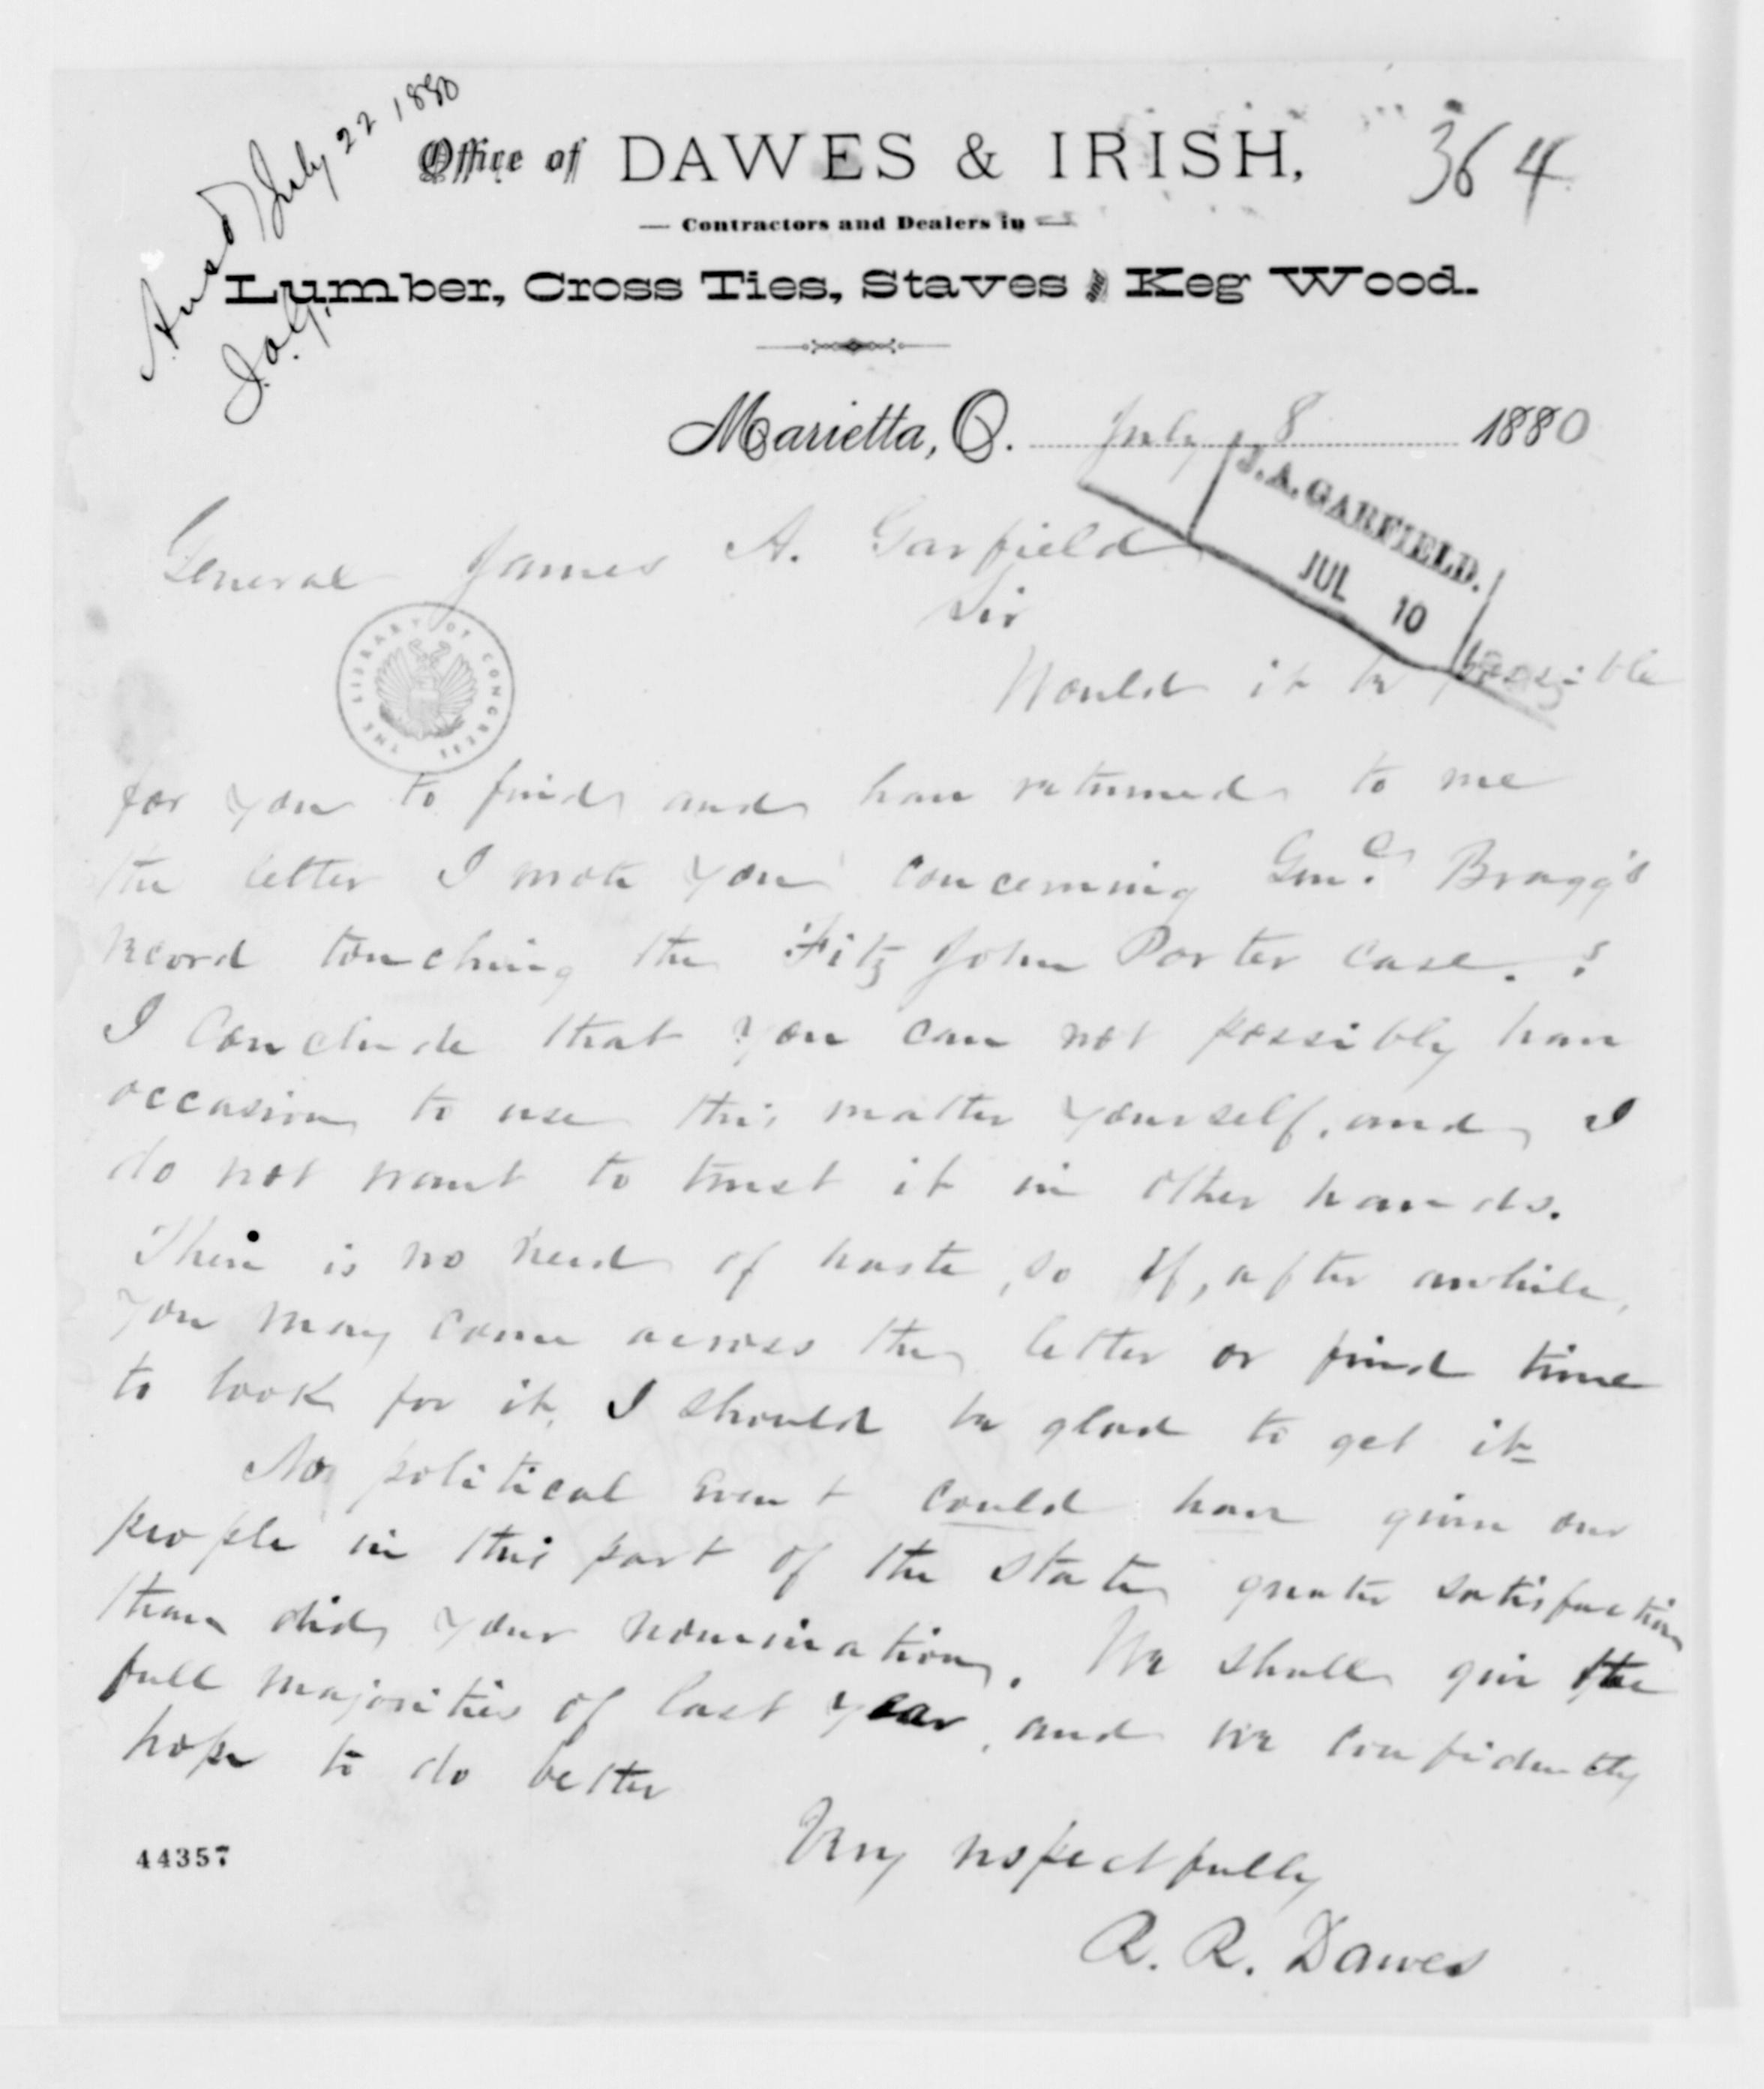 Ansd July 22 1880
J.A.G.
364
Office of DAWES & IRISH,
Contractors and Dealers in
Lumber, Cross Ties, Staves and Keg Wood.
Marietta, O. July 8 1880
J. A. GARFIELD.
JUL 10
1880
General James A. Garfield
Sir
Would it be possible
THE LIBRARY OF CONGRESS
for you to find and have returned to me
the letter I wrote you concerning Genl. Bragg's
record touching the Fitz John Porter case. ?
I conclude that you can not possibly have
occasion to use this matter yourself, and I
do not want to trust it in other hands.
There is no need of haste, so If, after awhile,
you may come across the letter or find time
to look for it, I should be glad to get it
No political event could have given our
people in this part of the state greater satisfaction
than did your nomination. We shall give the
full majorities of last year, and we confidently
hope to do better
Very respectfully
R. R. Dawes
44357